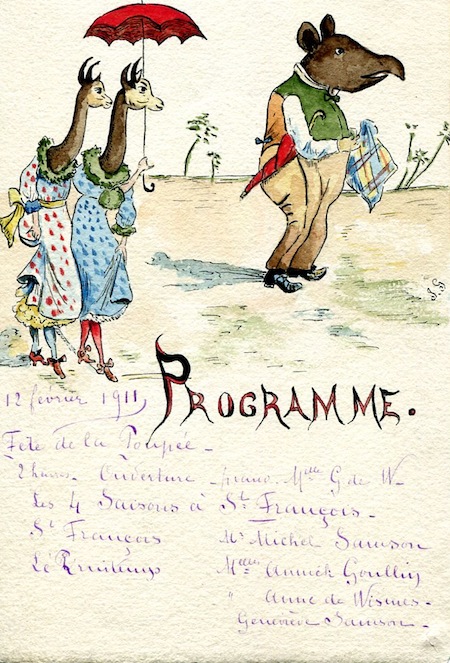 J.S
PROGRAMME.
12 février 1911
Fête de la Poupée -
2 heures - Ouverture - piano. Mlle G de W-
Les 4 Saisons à St. François -
St François Mr Michel Samson
Le Printemps Melles Annick Goullin
" Anne de Wismes -
Geneviève Samson -